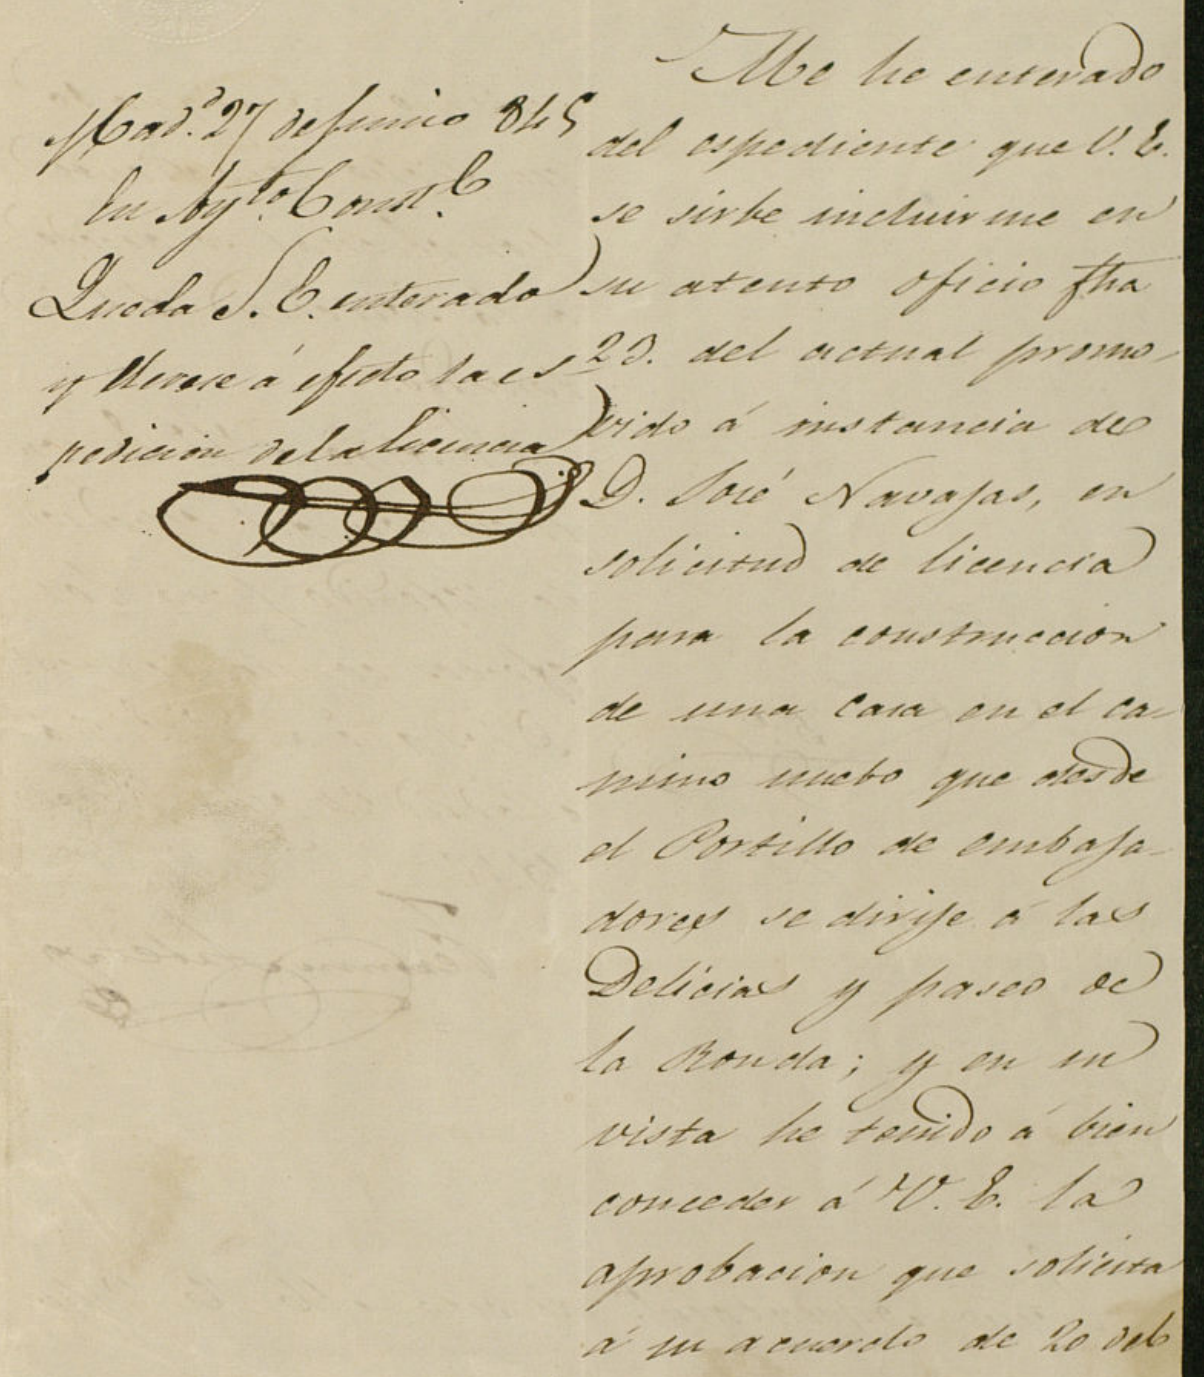 Mad.d 27 de Junio 845
En Ayto. Constl.
Queda S. E. enterado
y llevese á efecto la es
pedicion de la licencia
Me he enterado
del espediente que V. E.
se sirbe incluirme en
su atento oficio fha
23. del actual promo-
vido á instancia de
D. José Navajas, en
solicitud de licencia
para la construccion
de una casa en el ca-
mino nuebo que desde
el Portillo de embaja-
dores se dirije á las
Delicias y paseo de
la Ronda; y en su
vista he tenido á bien
conceder á V. E. la
aprobacion que solicita
á su acuerdo de 20 del